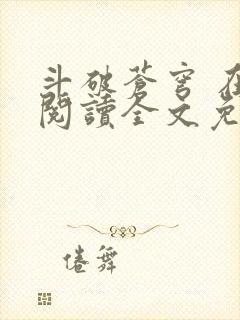 斗破蒼穹 在
閱讀全文免
倦舞